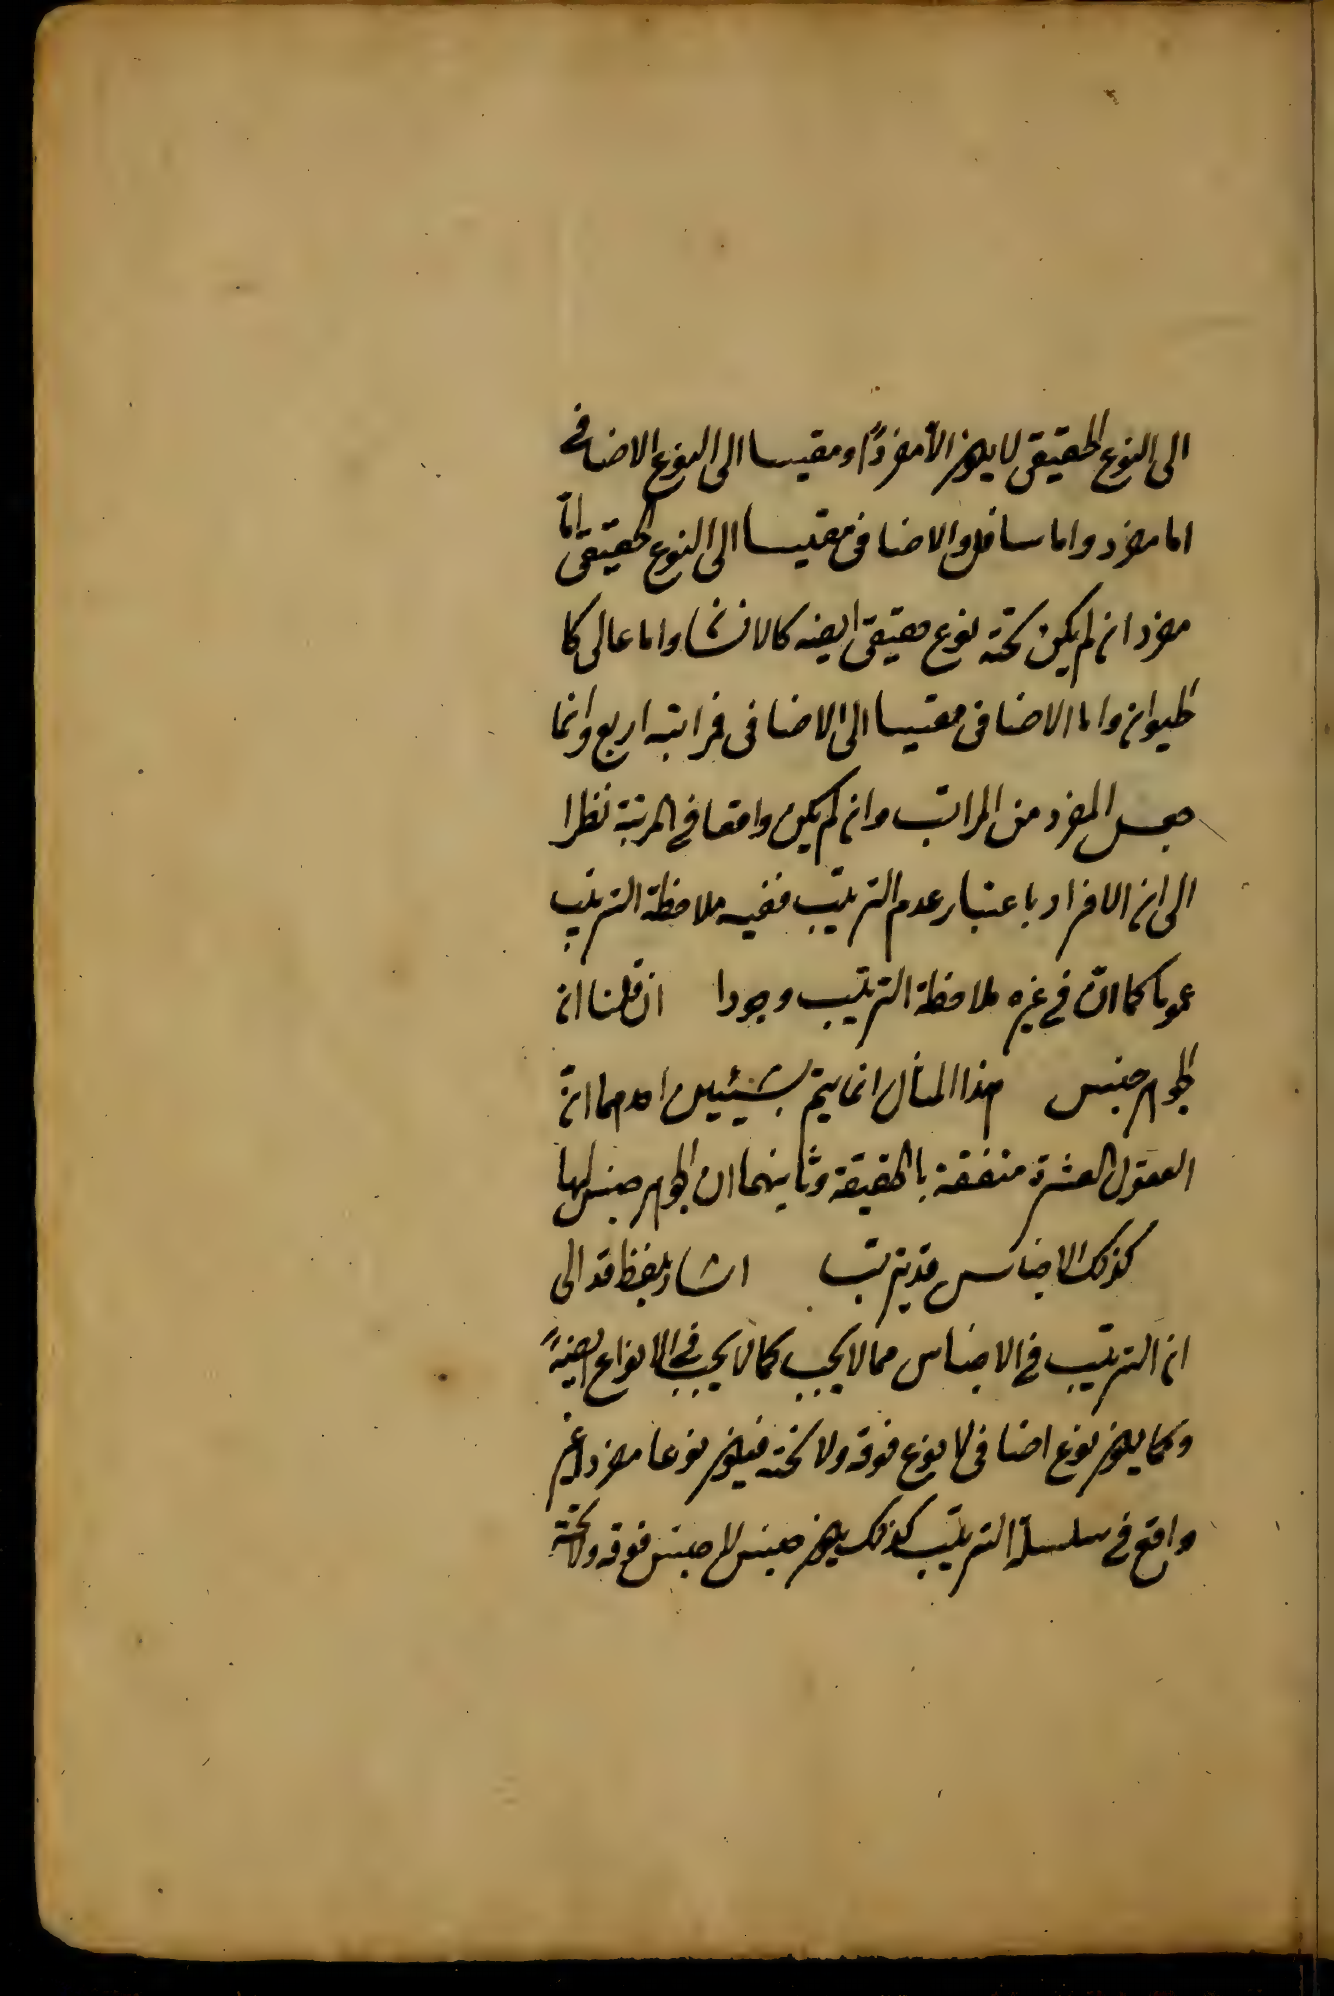 الى النوع الحقيقى لا يكون الا مفردًا ومقيسا الى النوع الاضافى
اما مفرد واما سافل والاضافى مقيسا الى النوع الحقيقى امّا
مفرد ان لم يكن تحته نوع حقيقى ايضه كالانسا واما عالى كا
لحيوان واما الاضافى مقيسا الى الاضافى فمراتبه اربع وانما
جعل المفرد من المراتب وان لم يكن واقعا فى المرتبة نظرا
الى ان الافراد باعتبار عدم الترتيب ففيه ملاحظة الترتيب
عدما كما انّ فى غيره ملاحظة الترتيب وجودا ان قلنا ان
الجوهر جنس هذا المثال انما يتم بشيئين احدهما انّ
العقول العشرة متفقة بالحقيقة وثانيهما ان الجوهر جنس لها
كذلك الاجناس قد يترتب اشار بلفظ قد الى
ان الترتيب فى الاجناس مما لا يجب كما لا يجب فى الانواع ايضهً
وكما يكون نوع اضافى لا نوع فوقه ولا تحته فيكون نوعا مفردا غير
واقع فى سلسلة الترتيب كذلك يكون جنس لا جنس فوقه ولا تحته